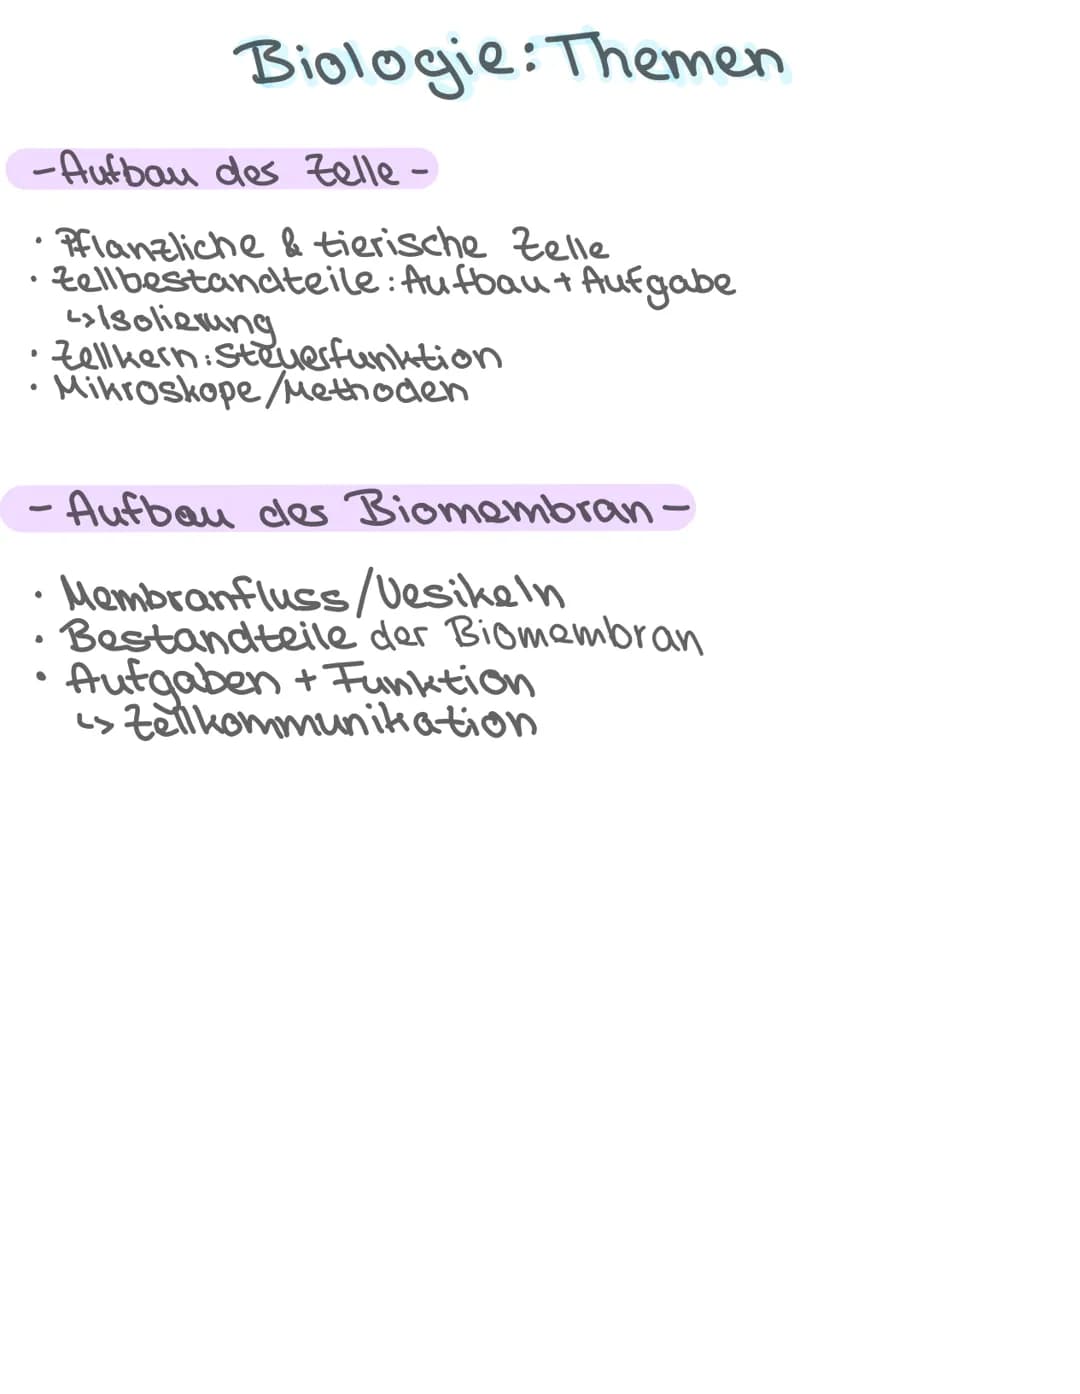 Biologie: Themen
- Aufbau der Zelle -
· Pflanzliche & tierische Zelle
· Zellbestandteile: Aufbau + Aufgabe
↳ Isolierung
· Zellkern: Steuerfunktion
· Mikroskope/Methoden
- Aufbau der Biomembran -
· Membranfluss/Vesikeln
· Bestandteile der Biomembran
· Aufgaben + Funktion
↳ Zellkommunikation